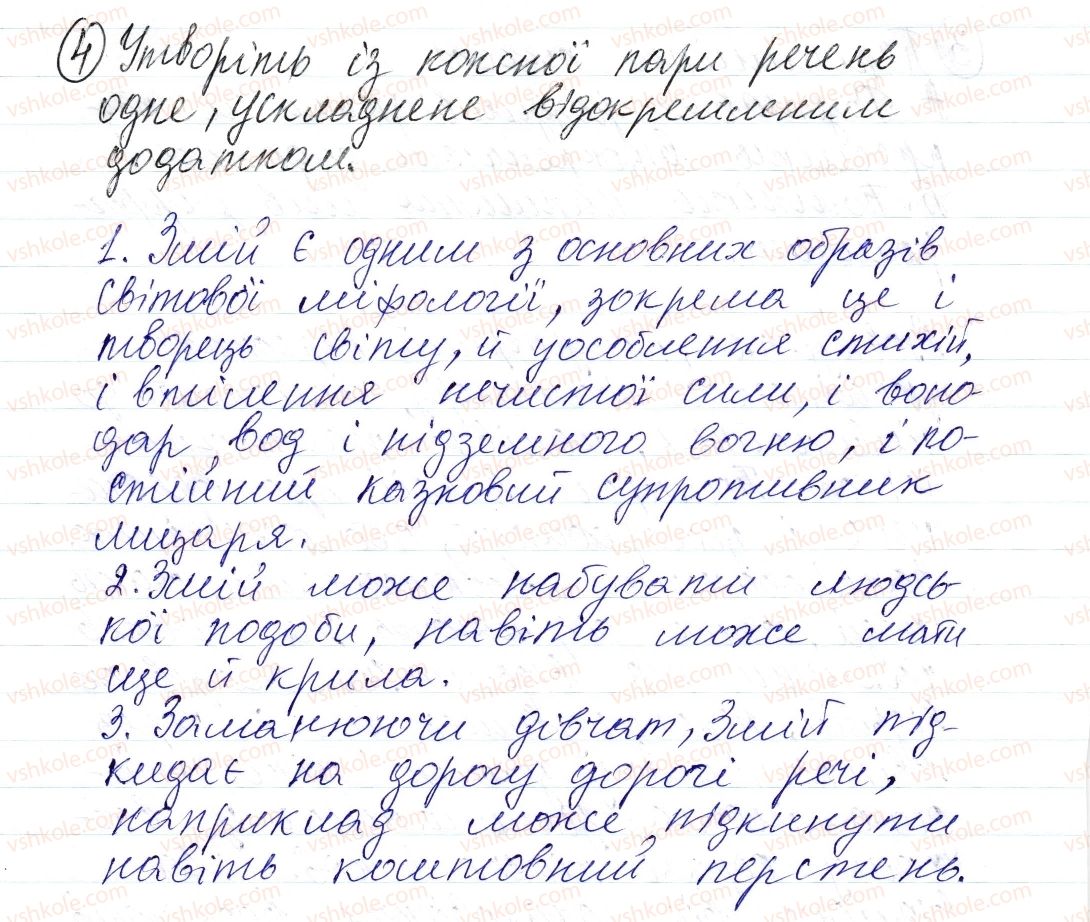 4 Утворіть із кожної пари речень
одне, ускладнене відокремленим
додатком.
1. Змій є одним з основних образів
світової міфології, зокрема це і
творець світу, й уособлення стихій,
і втілення нечистої сили, і воло-
дар вод і підземного вогню, і по-
стійний казковий супротивник
лицаря.
2. Змій може набувати людсь-
кої подоби, навіть може мати
ще й крила.
3. Заманюючи дівчат, Змій під-
кидає на дорогу дорогі речі,
наприклад може підкинути
навіть коштовний перстень.